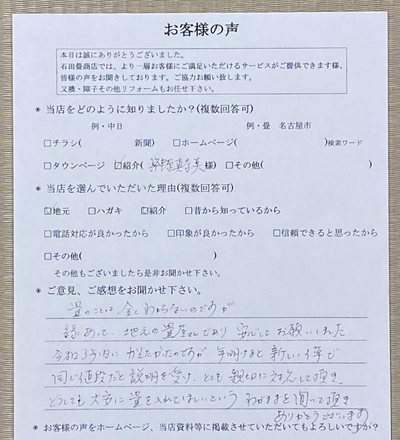 お客様の声
本日は誠にありがとうございました。
石田畳商店では、より一層お客様にご満足いただけるサービスがご提供できます様、
皆様の声をお聞きしております。ご協力お願い致します。
又襖・障子その他リフォームもお任せ下さい。
* 当店をどのように知りましたか?(複数回答可)
例・中日 例・畳 名古屋市
□チラシ( 新聞) □ホームページ( )検索ワード
□タウンページ ☑紹介( 様) □その他( )
* 当店を選んでいただいた理由(複数回答可)
☑地元 □ハガキ ☑紹介 □昔から知っているから
□電話対応が良かったから □印象が良かったから □信頼できると思ったから
□その他( )
その他もございましたら是非お聞かせ下さい。
* ご意見、ご感想をお聞かせ下さい。
畳のことは全くわからないのですが
縁あって、地元の畳屋さんであり 安心してお願いしました
令和3年内に のですが 年明けると新しい で
同じ値段だと説明を受け、とても親切に対応して頂き
どうしても 畳を入れてほしいという わがままを聞いて頂き
ありがとうございます
* お客様の声をホームページ、当店資料等に掲載させていただいてもよろしいですか?